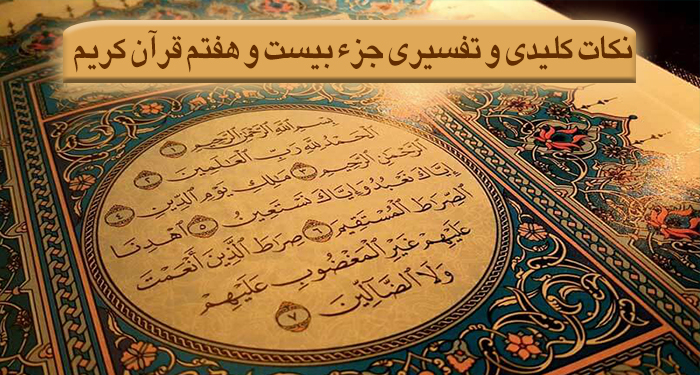 نکات کلیدی و تفسیری جزء بیست و هفتم قرآن کریم
بِسْمِ اللَّهِ الرَّحْمَٰنِ الرَّحِيمِ ١
الْحَمْدُ لِلَّهِ رَبِّ الْعَالَمِينَ ٢
الرَّحْمَٰنِ الرَّحِيمِ ٣ مَالِكِ يَوْمِ الدِّينِ ٤
إِيَّاكَ نَعْبُدُ وَإِيَّاكَ نَسْتَعِينُ ٥ اهْدِنَا
الصِّرَاطَ الْمُسْتَقِيمَ ٦ صِرَاطَ الَّذِينَ أَنْعَمْتَ
عَلَيْهِمْ غَيْرِ الْمَغْضُوبِ عَلَيْهِمْ
وَلَا الضَّالِّينَ ٧